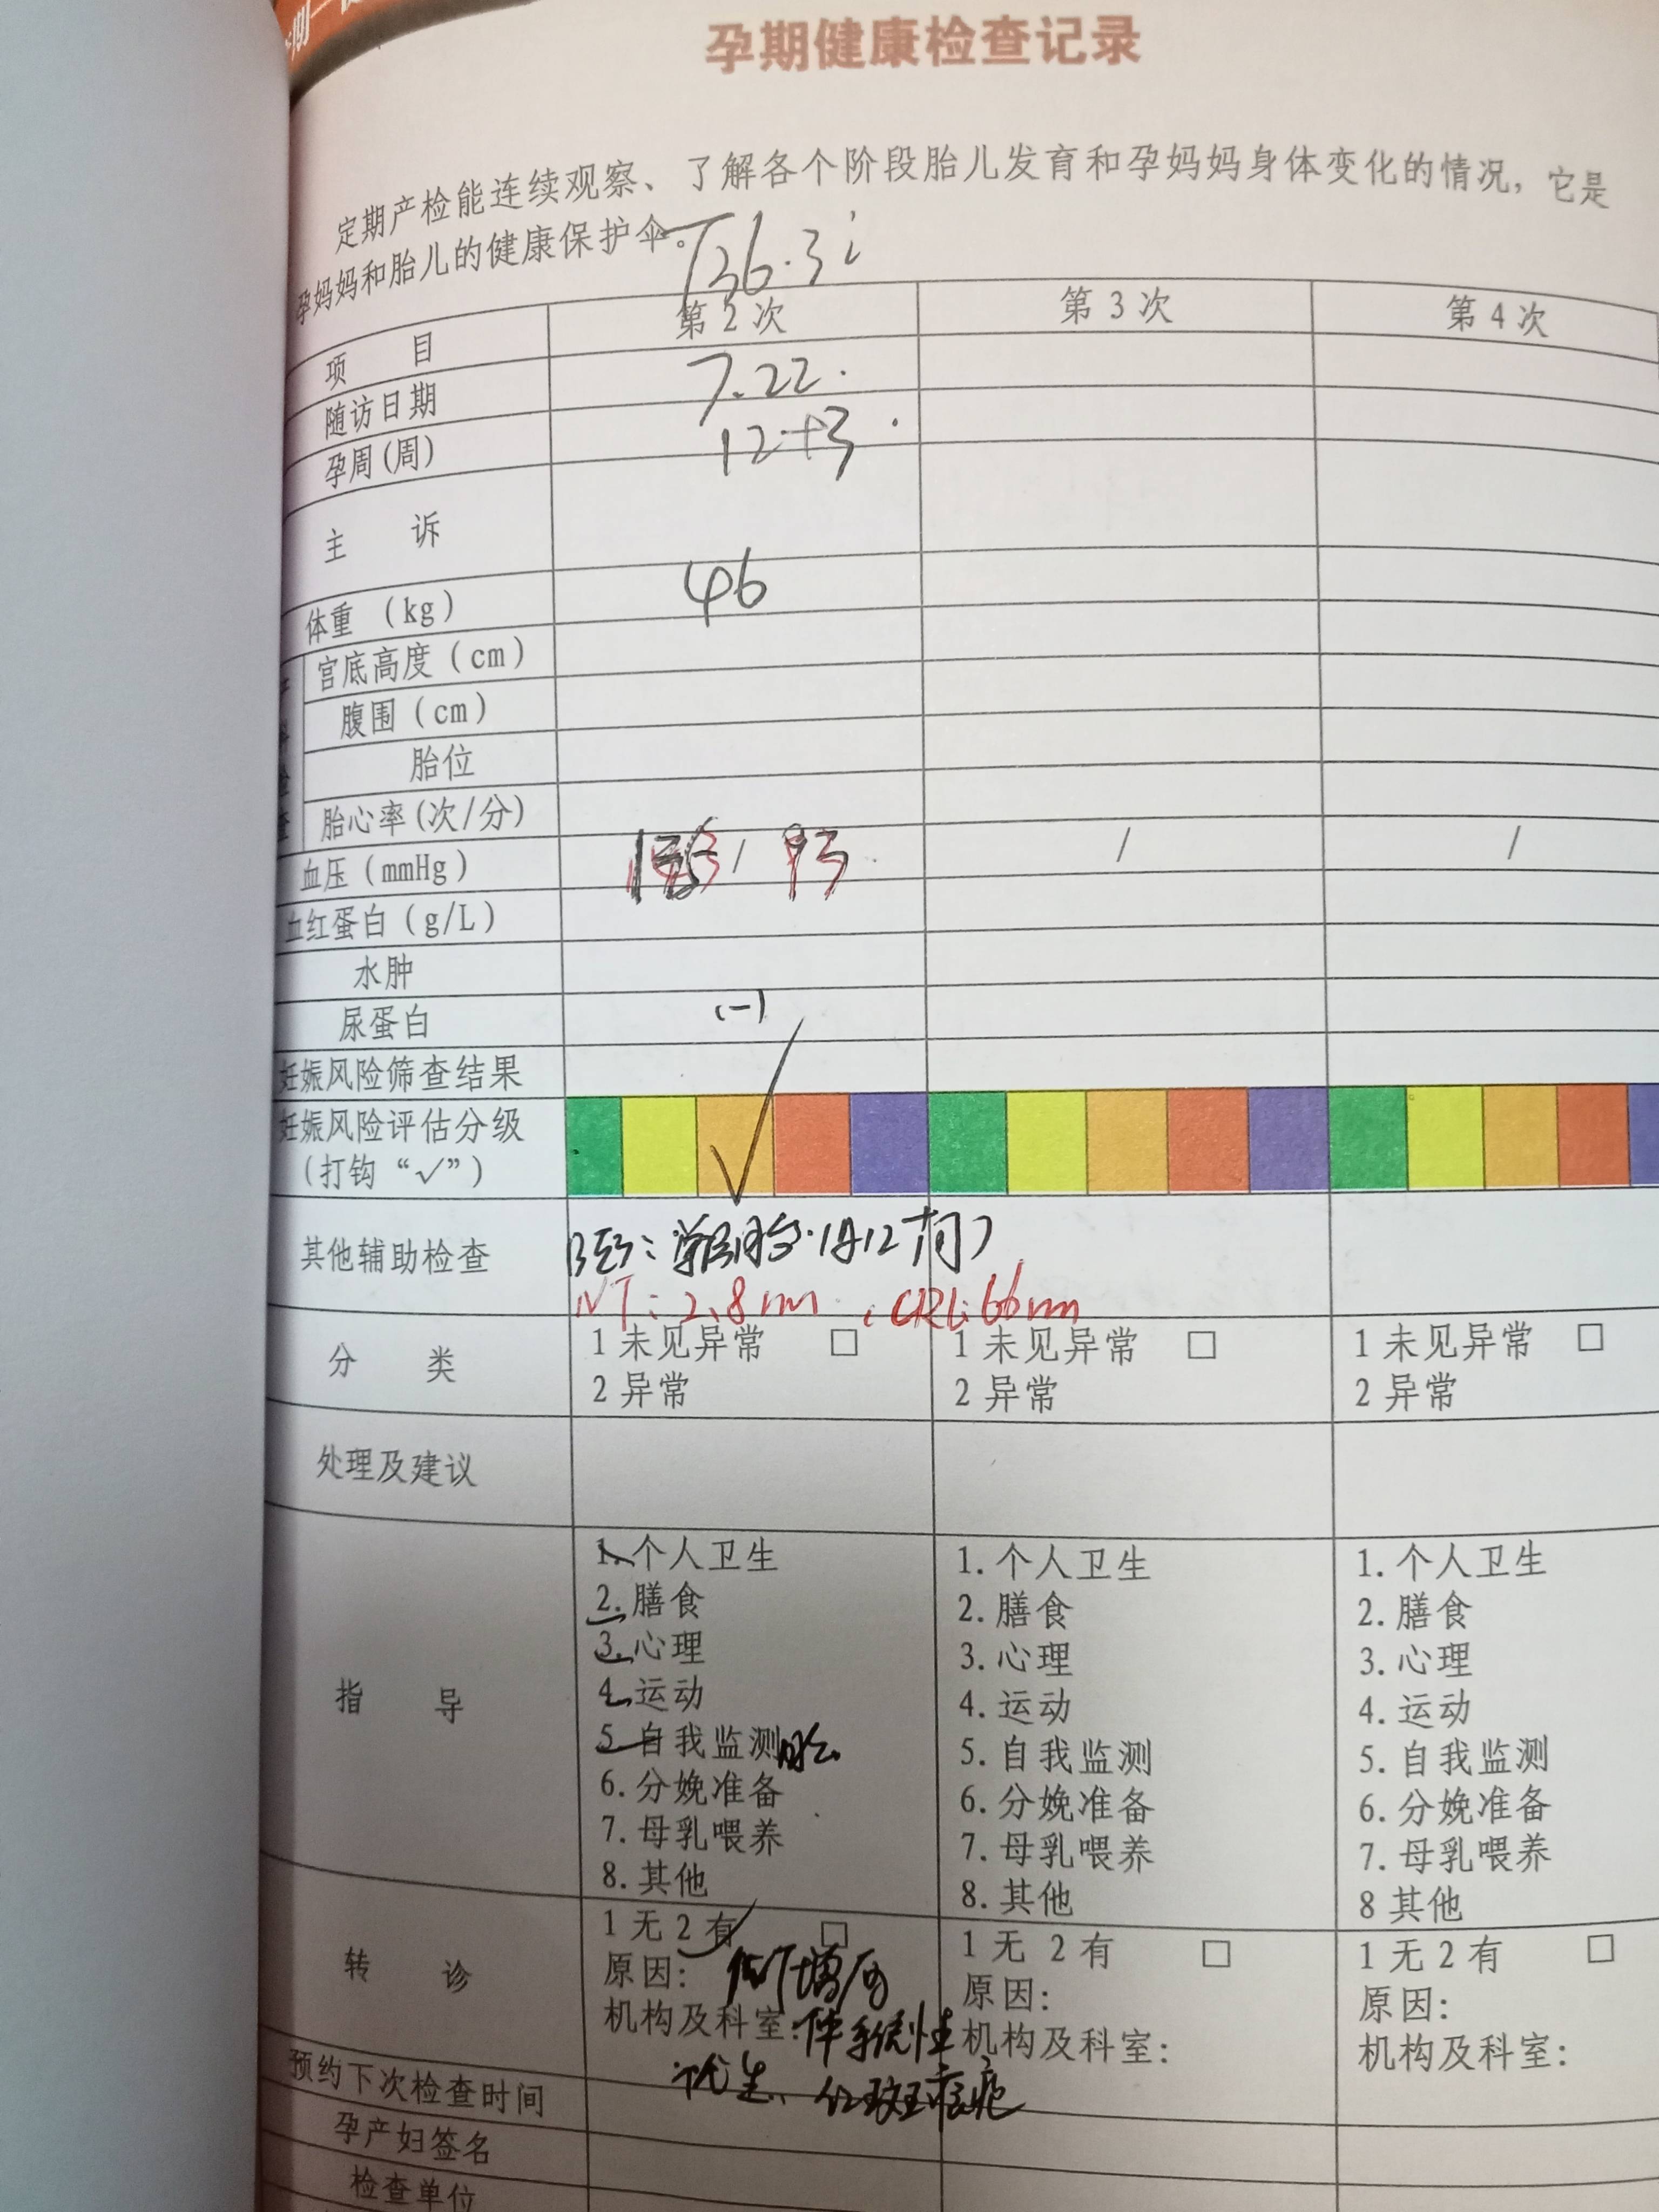 孕期健康检查记录
定期产检能连续观察、了解各个阶段胎儿发育和孕妈妈身体变化的情况，它是
孕妈妈和胎儿的健康保护伞。
T36.3
项 目 第2次 第3次 第4次
随访日期 7.22.
孕周(周) 12+3
主 诉
体重 (kg) 46
宫底高度(cm)
腹围(cm)
胎位
胎心率(次/分)
血压(mmHg) / 93 / /
血红蛋白(g/L)
水肿
尿蛋白 (-)
妊娠风险筛查结果
妊娠风险评估分级
(打钩“√”) √
其他辅助检查
NT: 2.8mm CRL:66mm
分 类 1 未见异常 □ 1 未见异常 □ 1 未见异常 □
2 异常 2 异常 2 异常
处理及建议
指 导
1.个人卫生 1.个人卫生 1.个人卫生
2.膳食 2.膳食 2.膳食
3.心理 3.心理 3.心理
4.运动 4.运动 4.运动
5.自我监测 5.自我监测 5.自我监测
6.分娩准备 6.分娩准备 6.分娩准备
7.母乳喂养 7.母乳喂养 7.母乳喂养
8.其他 8.其他 8其他
转 诊
1无2有 □ 1无 2有 □ 1无2有 □
原因: NT增厚 原因: 原因:
机构及科室: 机构及科室: 机构及科室:
红斑
预约下次检查时间
孕产妇签名
检查单位